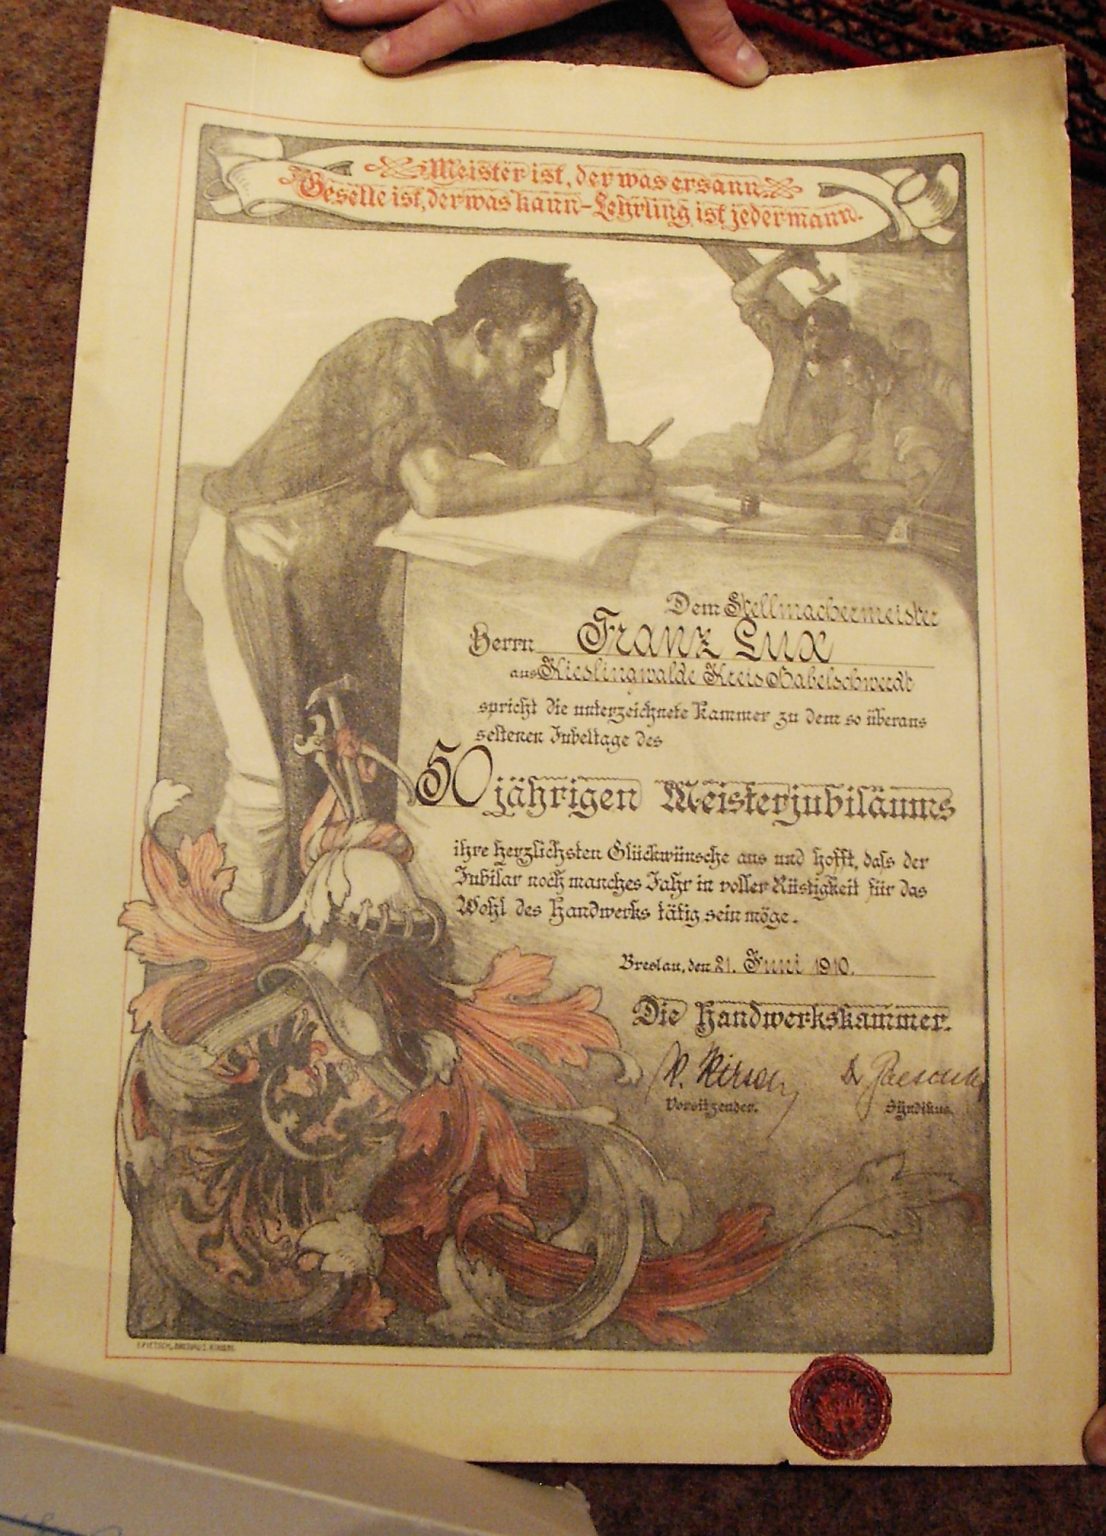 Meister ist, der was ersann
Geselle ist, der was kann - Lehrling ist jedermann.
Dem Stellmachermeister
Herrn Franz Lux
aus Kieslingwalde Kreis Habelschwerdt
spricht die unterzeichnete Kammer zu dem so überaus
seltenen Jubeltage des
50 jährigen Meisterjubiläums
ihre herzlichsten Glückwünsche aus und hofft, dass der
Jubilar noch manches Jahr in voller Rüstigkeit für das
Wohl des Handwerks tätig sein möge.
Breslau, den 21. Juni 1910.
Die Handwerkskammer.
Vorsitzender.
Syndikus.